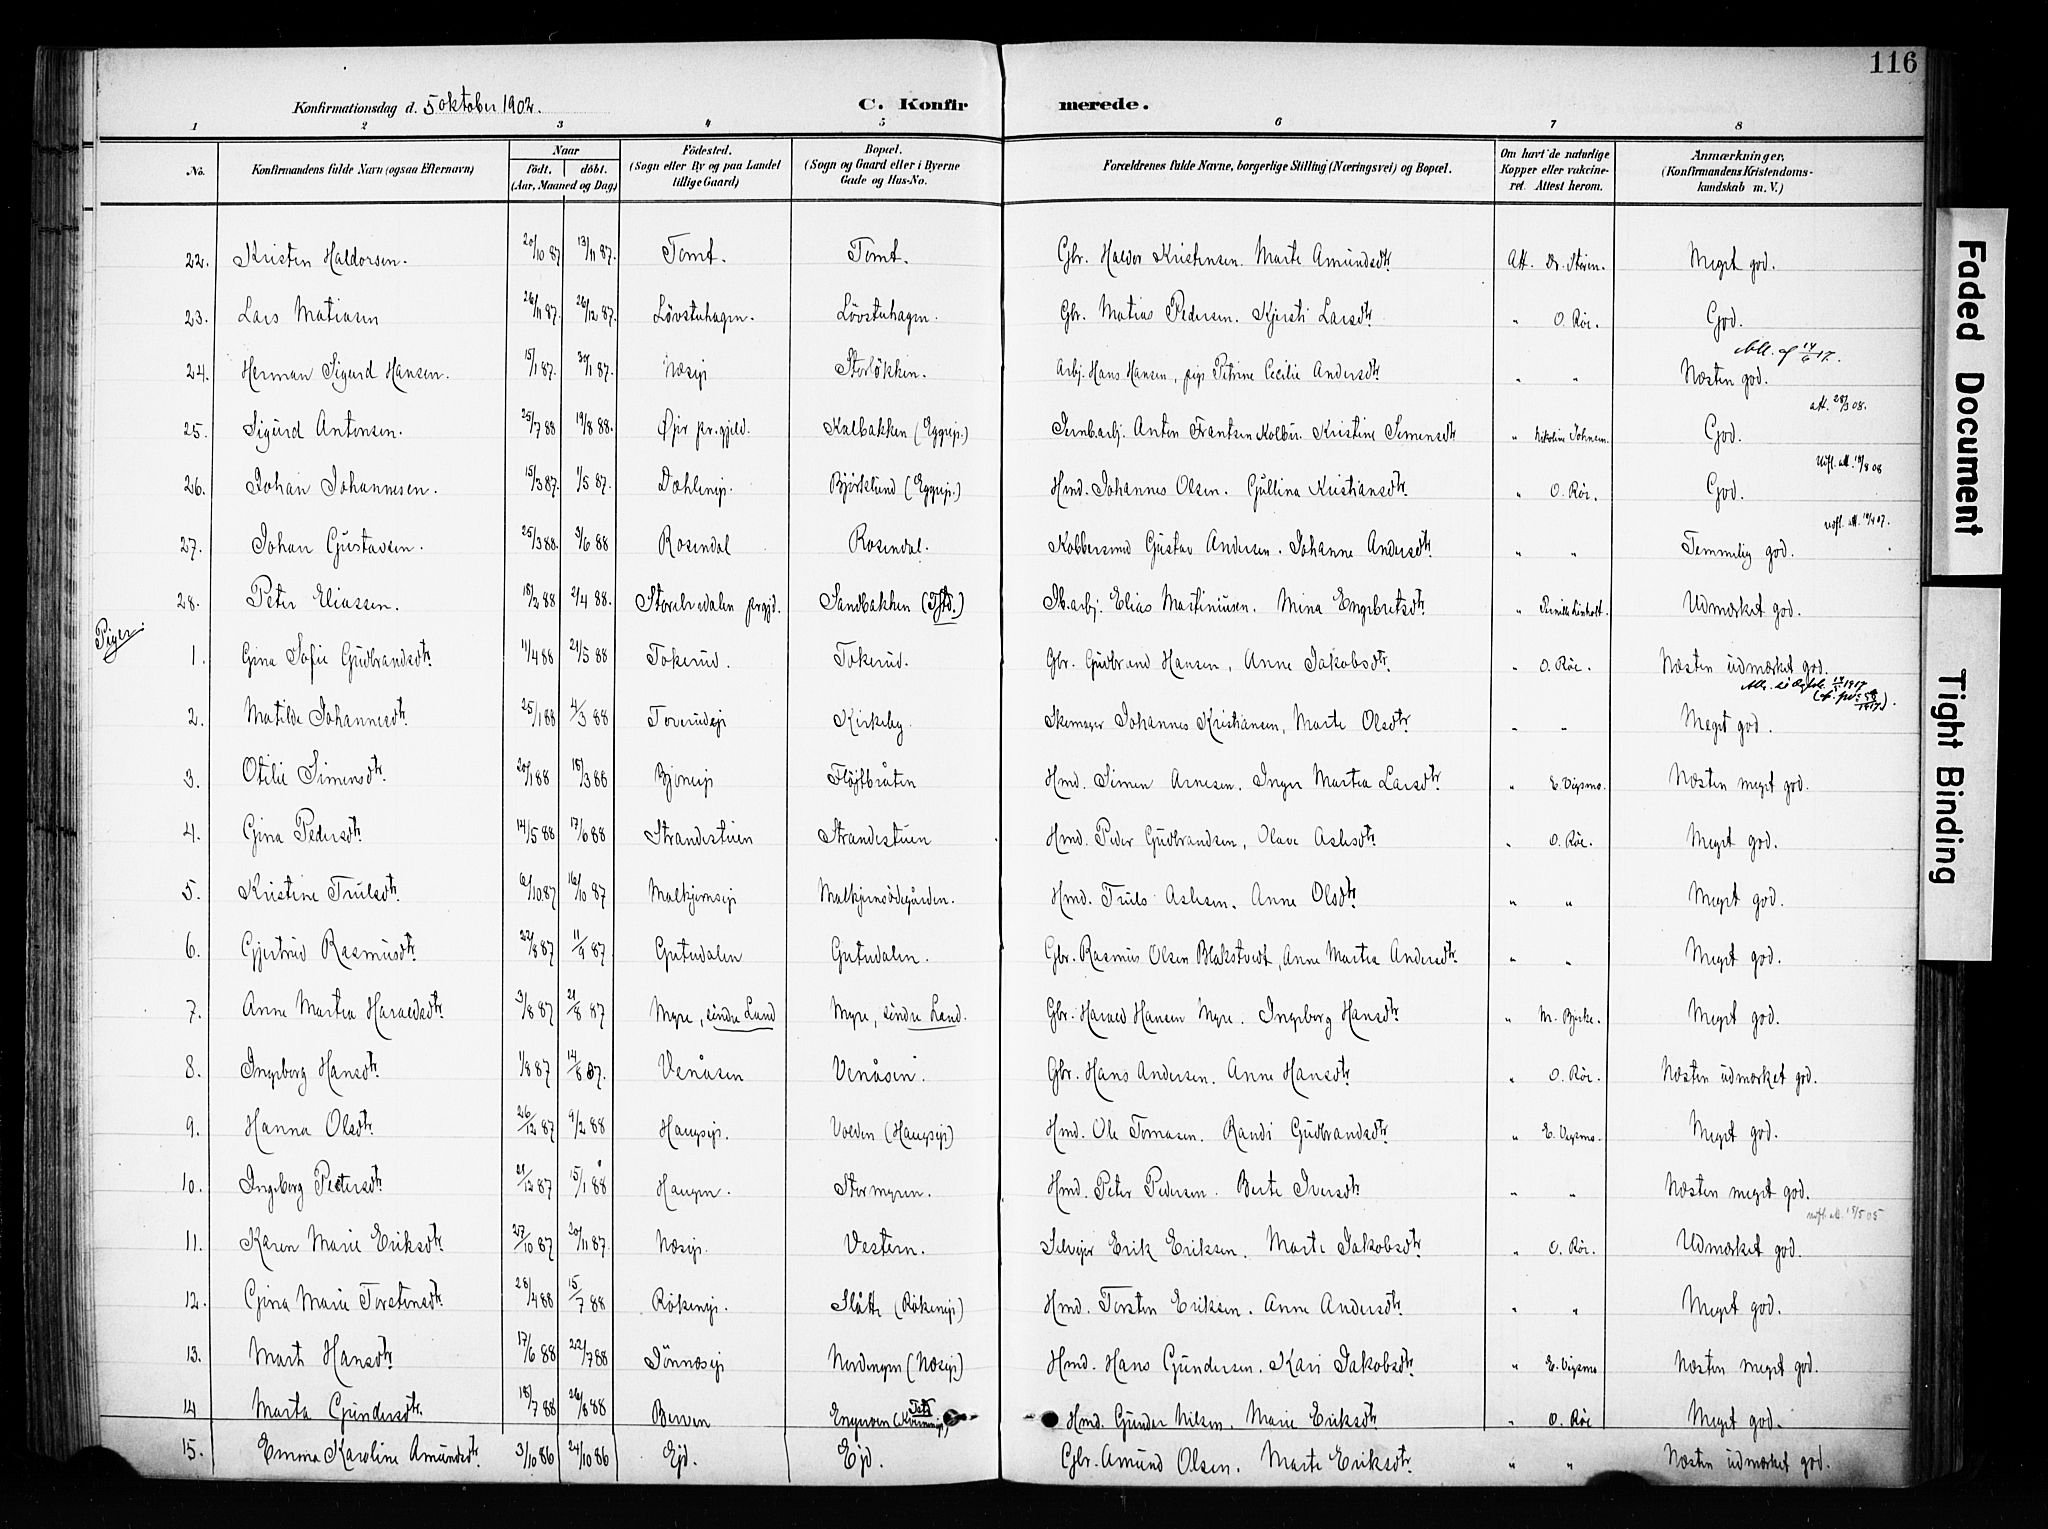 116
Konfirmationsdag d. 5 oktober 1902.
C. Konfirmerede.
1 2 3 4 5 6 7 8
No. Konfirmandens fulde Navn (ogsaa Efternavn) Naar födt. döbt. (Aar, Maaned og Dag) Födested. (Sogn eller By og paa Landet tillige Gaard) Bopæl. (Sogn og Gaard eller i Byerne Gade og Hus-No. Forældrenes fulde Navne, borgerlige Stilling (Næringsvei) og Bopæl. Om havt de naturlige Kopper eller vakcineret. Attest herom. Anmærkninger. (Konfirmandens Kristendomskundskab m. V.)
22. Kristen Haldorsen. 20/10 87 13/11 87. Tomt. Tomt. Gbr. Haldor Kristensen. Marte Amundsdtr. Att. Dr. Steen. Meget god.
23. Lars Matiasen 26/11 87. 26/12 87. Lövstuhagen. Lövstuhagen. Gbr. Matias Pedersen. Kjersti Larsdtr " O. Röe. God.
24. Herman Sigurd Hansen. 15/1 87. 30/1 87. Næseje Storlökken. Arbj. Hans Hansen, pige Petrine Cecilie Andersdtr " " Næsten god.
25. Sigurd Antonsen. 25/7 88 19/8 88. Øier pr.gjeld. Kalbakken (Eggeje.) Jernb.arbj. Anton Frantsen Kolbu. Kristine Simensdtr " God. att. 28/3 08.
26. Johan Johannesen. 15/3 87. 1/5 87. Dahleneje. Björklund (Eggeje.) Hmd. Johannes Olsen. Gullina Kristiansdtr. " O. Röe. God.
27. Johan Gustavsen. 25/3 88. 3/6 88 Rosendal Rosendal. Kobbersmed Gustav Andersen. Johanne Andersdtr. " " Temmelig god.
28. Peter Eliassen. 18/2 88 2/4 88. Storelvedalen prgjd. Sandbakken Jb.arbj. Elias Martiniusen. Mina Engebretsdtr. " Udmærket god.
Piger.
1. Gina Sofie Gudbrandsdtr. 11/4 88 21/5 88 Tokerud. Tokerud. Gbr. Gudbrand Hansen, Anne Jakobsdtr. " O. Röe. Næsten udmærket god.
2. Matilde Johannesdtr. 25/1 88 4/3 88 Toverudeje Kirkeby. Skomager Johannes Kristiansen, Marte Olsdtr " " Meget god.
3. Otilie Simensdtr. 20/1 88 18/3 88 Bjoneeje Flöjtbråten Hmd. Simen Arnesen. Inger Martea Larsdtr. " E. Vigsmo. Næsten meget god.
4. Gina Pedersdtr. 14/5 88 17/6 88 Strandestuen Strandestuen Hmd. Peder Gudbrandsen, Olave Aslesdtr. " O. Röe. Meget god.
5. Kristine Trulsdtr. 6/10 87 16/10 87 Malkjernseje Malkjernsödegården. Hmd. Truls Aslesen. Anne Olsdtr. " " Meget god.
6. Gjertrud Rasmusdtr. 22/8 87 11/9 87 Gutudalen Gutudalen. Gbr. Rasmus Olsen Blakstvedt, Anne Martea Andersdtr. " " Meget god.
7. Anne Martea Haraldsdtr. 3/8 87 21/8 87 Myre, söndre Land Myre, söndre Land. Gbr. Harald Hansen Myre. Ingeborg Hansdtr. " M. Bjerke. Meget god.
8. Ingeborg Hansdtr. 1/8 87 14/8 87. Venåsen Venåsen. Gbr. Hans Andersen. Anne Hansdtr. " O. Röe. Næsten udmærket god.
9. Hanna Olsdtr. 26/12 87 9/2 88 Haugseje. Volden (Haugseje) Hmd. Ole Tomasen. Randi Gudbrandsdtr. " E. Vigsmo. Meget god.
10. Ingeborg Petersdtr. 21/12 87 15/1 88 Haugen. Stormyren. Hmd. Peter Pedersen. Berte Iversdtr. " " Næsten meget god.
11. Karen Marie Eriksdtr. 27/10 87 20/11 87. Næseje. Vestern. Selvejer Erik Eriksen. Marte Jakobsdtr. " O. Röe. Udmærket god.
12. Gina Marie Torstensdtr. 28/4 88 15/7 88 Rökeneje. Slåtte (Rökeneje) Hmd. Torsten Eriksen. Anne Andersdtr. " " Meget god.
13. Marte Hansdtr. 17/6 88 22/7 88 Sönnæseje Nordengen (Næseje) Hmd. Hans Gundersen. Kari Jakobsdtr. " E. Vigsmo Næsten meget god.
14 Marta Gundersdtr. 18/7 88 26/8 88 Berven Hmd. Gunder Nilsen. Marie Eriksdtr. " O. Röe Meget god.
15. Emma Karoline Amundsdtr. 3/10 86 24/10 86 Ejd. Ejd. Gbr. Amund Olsen. Marte Eriksdtr. " " Næsten udmærket god.
Faded Document
Tight Binding